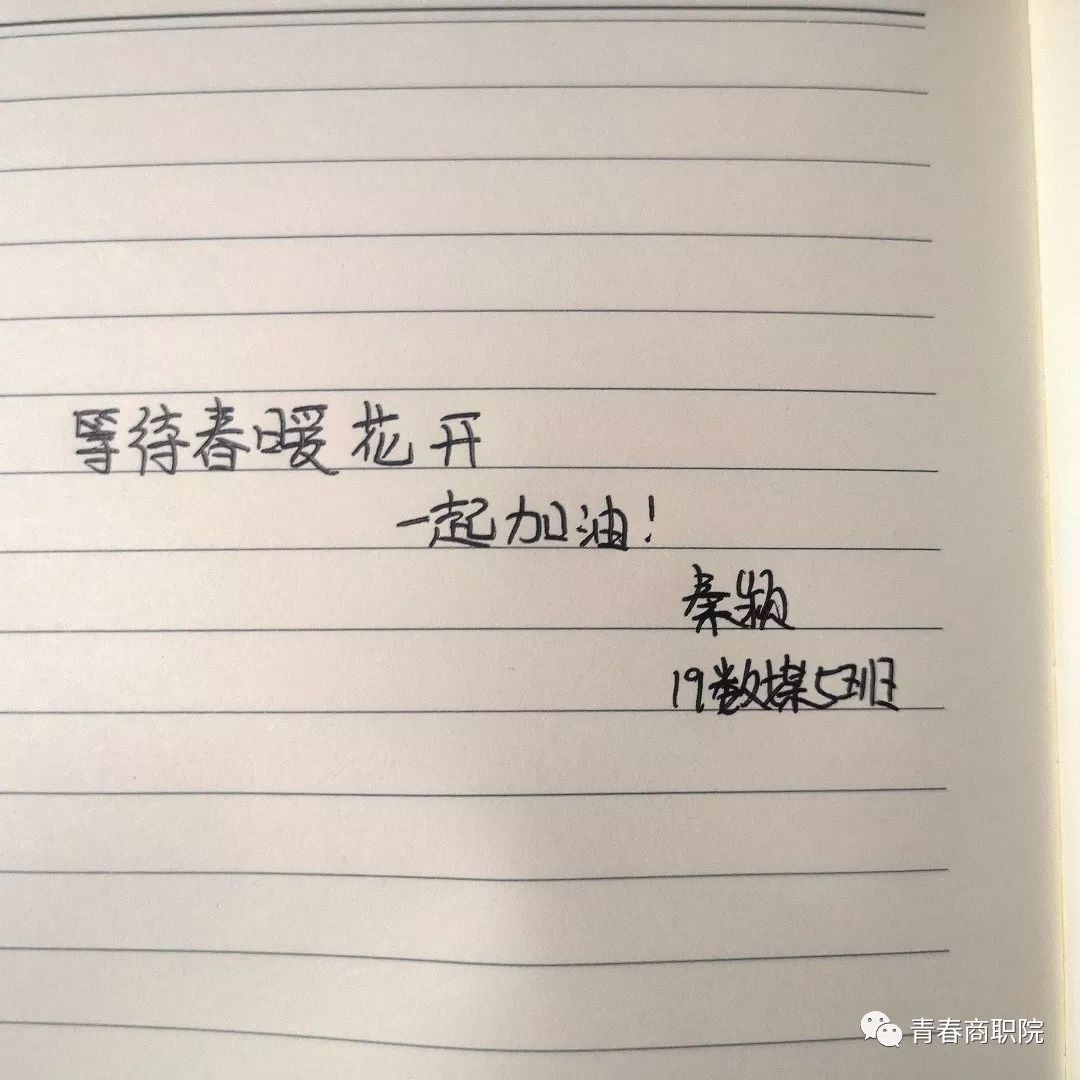 等待春暖花开
一起加油!
秦颍
19数媒5班
青春商职院